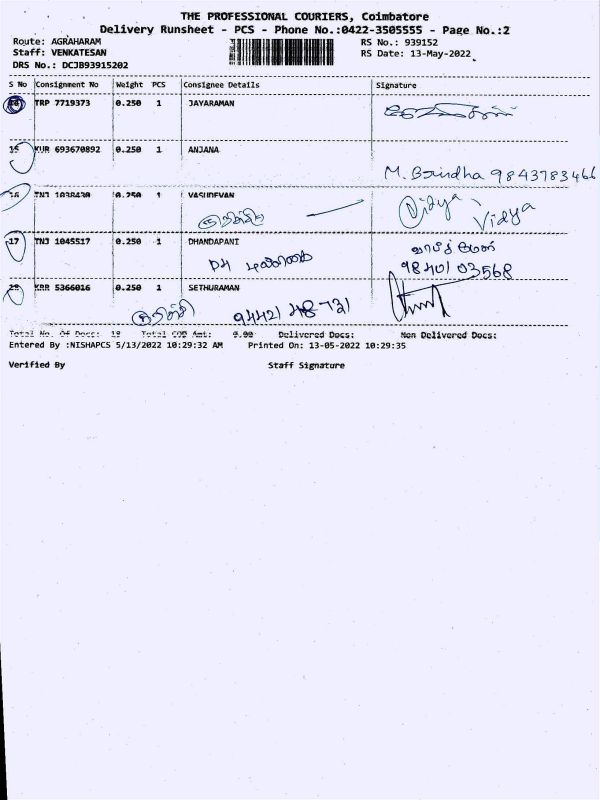 THE PROFESSIONAL COURIERS, Coimbatore
Delivery Runsheet - PCS - Phone No.:0422-3505555 - Page No.:2
Route: AGRAHARAM RS No.: 939152
Staff: VENKATESAN RS Date: 13-May-2022
DRS No.: DCJB93915202
S No Consignment No Weight PCS Consignee Details Signature
TRP 7719373 0.250 1 JAYARAMAN
15 KUR 693670892 0.250 1 ANJANA
M. Brindha 9843783466
16 TNJ 1038430 0.250 1 VASUDEVAN
Vidya Vidya
17 TNJ 1045517 0.250 1 DHANDAPANI
98401 03568
18 KRR 5366016 0.250 1 SETHURAMAN
94421 48731
Total No. Of Docs: 18 Total COD Amt: 0.00 Delivered Docs: Non Delivered Docs:
Entered By :NISHAPCS 5/13/2022 10:29:32 AM Printed On: 13-05-2022 10:29:35
Verified By Staff Signature